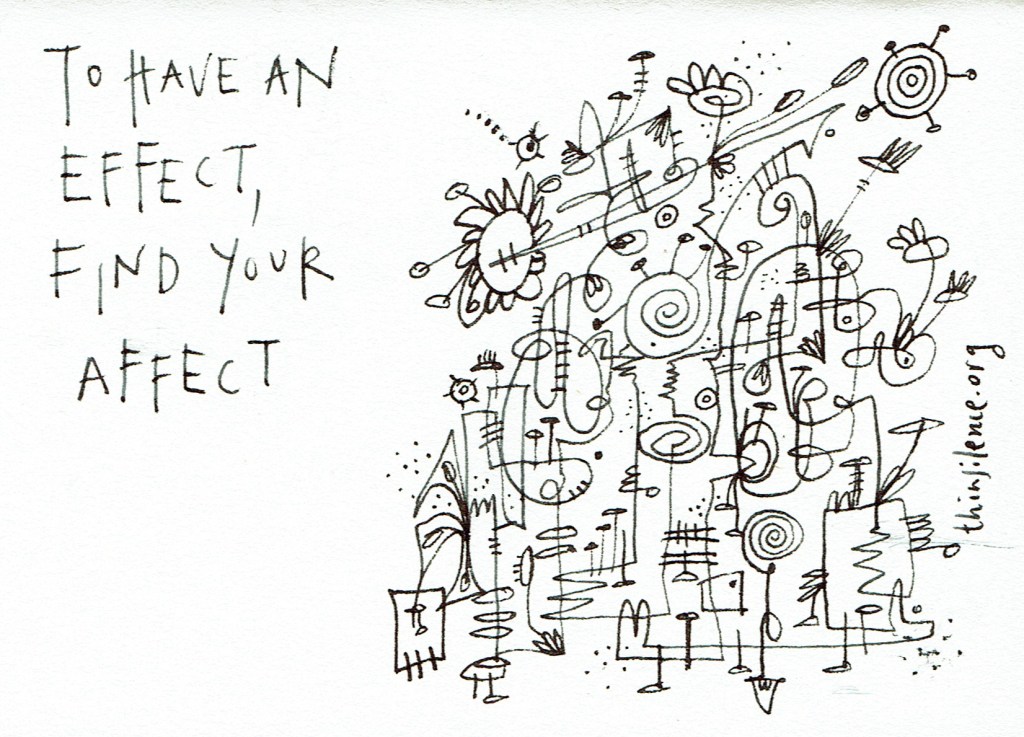 TO HAVE AN
EFFECT,
FIND YOUR
AFFECT
thinsilence.org